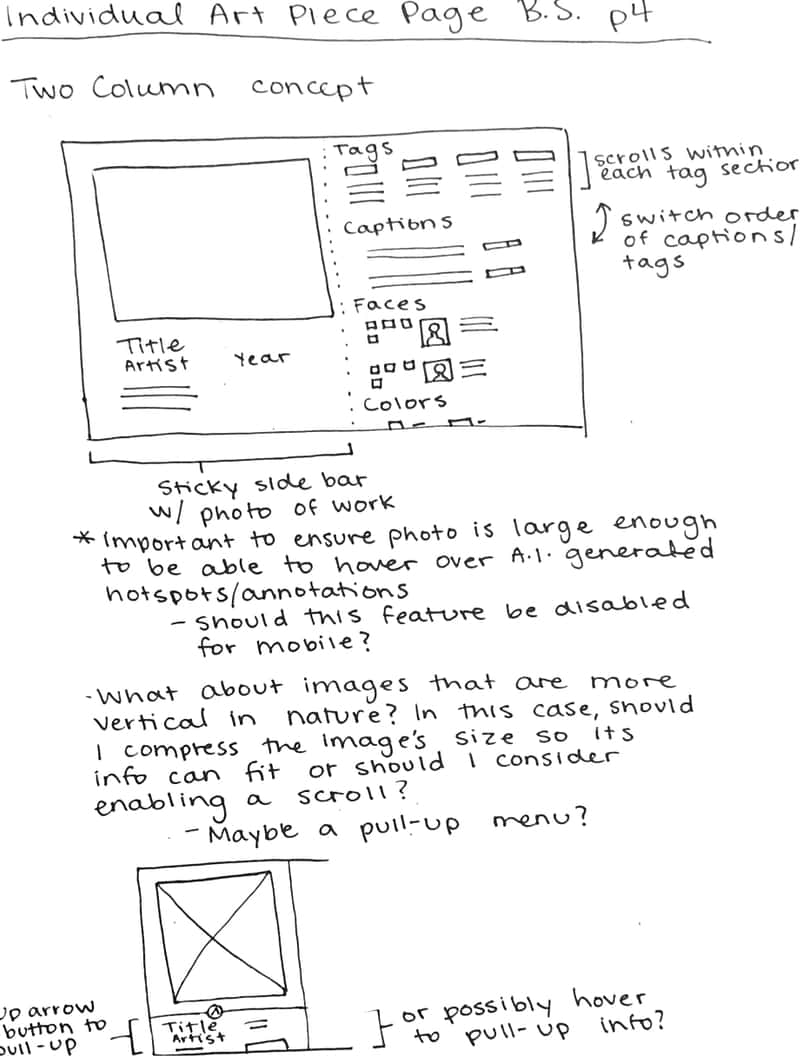 Individual Art Piece Page B.S. p4
Two Column concept
Tags
scrolls within
each tag section
Captions
switch order
of captions/
tags
Faces
Title
Artist
Year
Colors
Sticky side bar
w/ photo of work
* Important to ensure photo is large enough
to be able to hover over A.I. generated
hotspots/annotations
- should this feature be disabled
for mobile?
- What about images that are more
vertical in nature? In this case, should
I compress the image's size so its
info can fit or should I consider
enabling a scroll?
- Maybe a pull-up menu?
up arrow
button to
pull-up
Title
Artist
or possibly hover
to pull-up info?